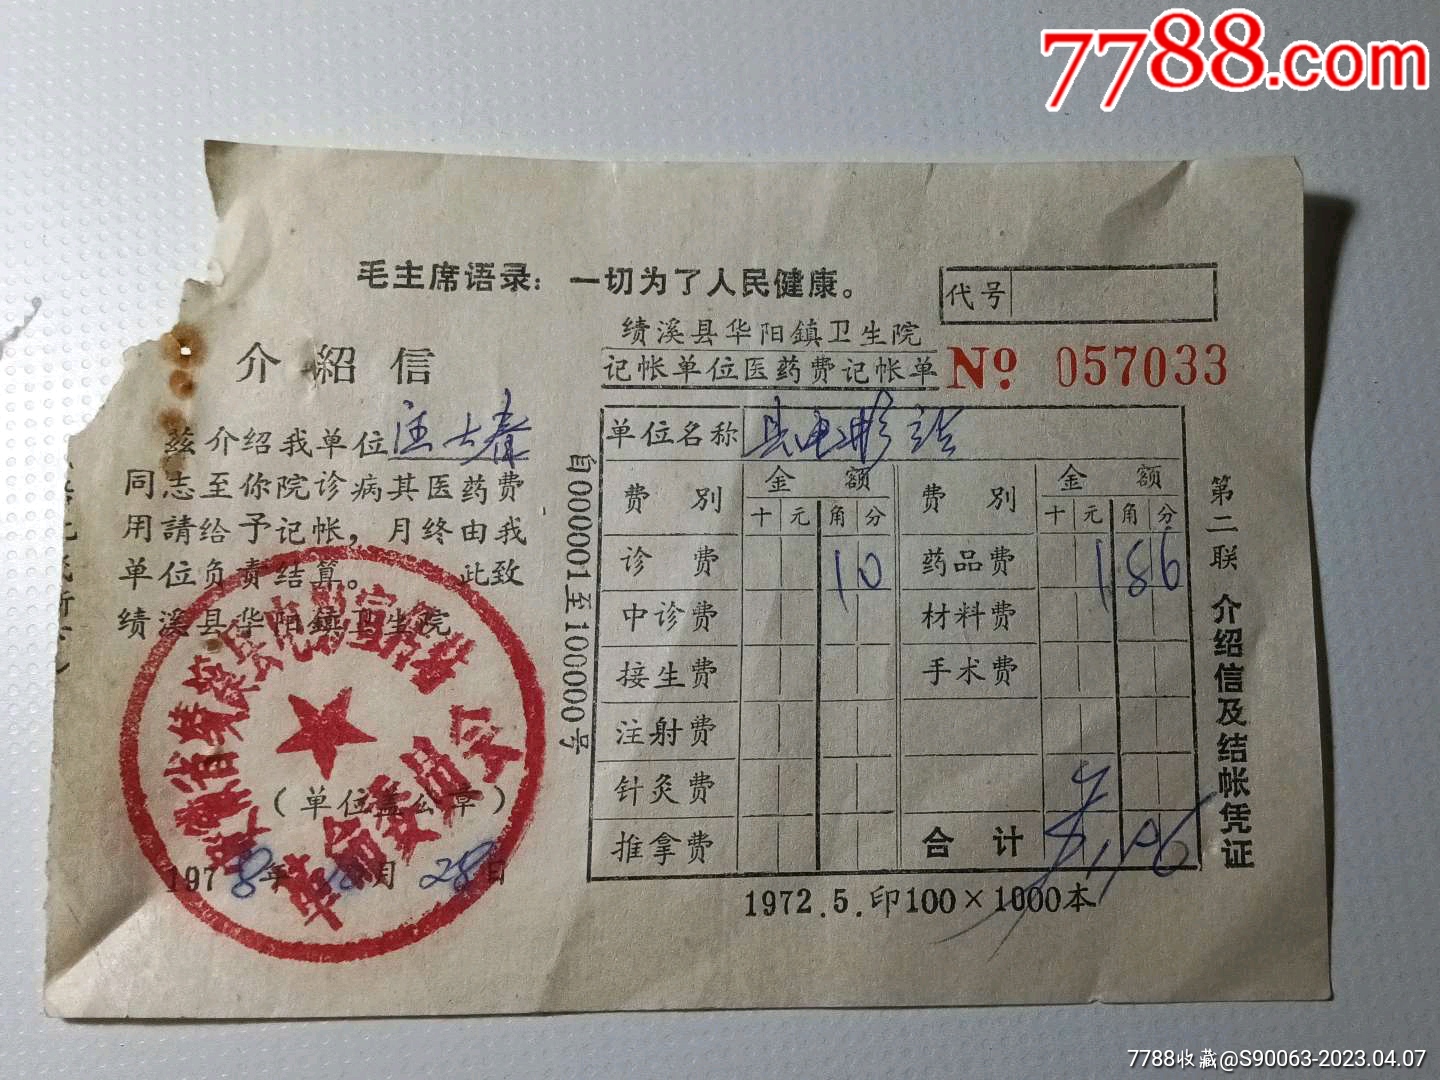 7788.com
毛主席语录：一切为了人民健康。
代号
介紹信
兹介绍我单位汪士春
同志至你院诊病其医药费
用請给予记帐，月终由我
单位负责结算。 此致
绩溪县华阳鎮卫生院
（单位盖公章）
1978年10月28日
自000001至100000号
绩溪县华阳鎮卫生院
记帐单位医药费记帐单
No. 057033
单位名称 县电影站
费别 金额 费别 金额
十 元 角 分 十 元 角 分
诊费 10 药品费 186
中诊费 材料费
接生费 手术费
注射费
针灸费
推拿费 合计
1972.5.印100×1000本
第二联 介绍信及结帐凭证
7788收藏@S90063-2023.04.07